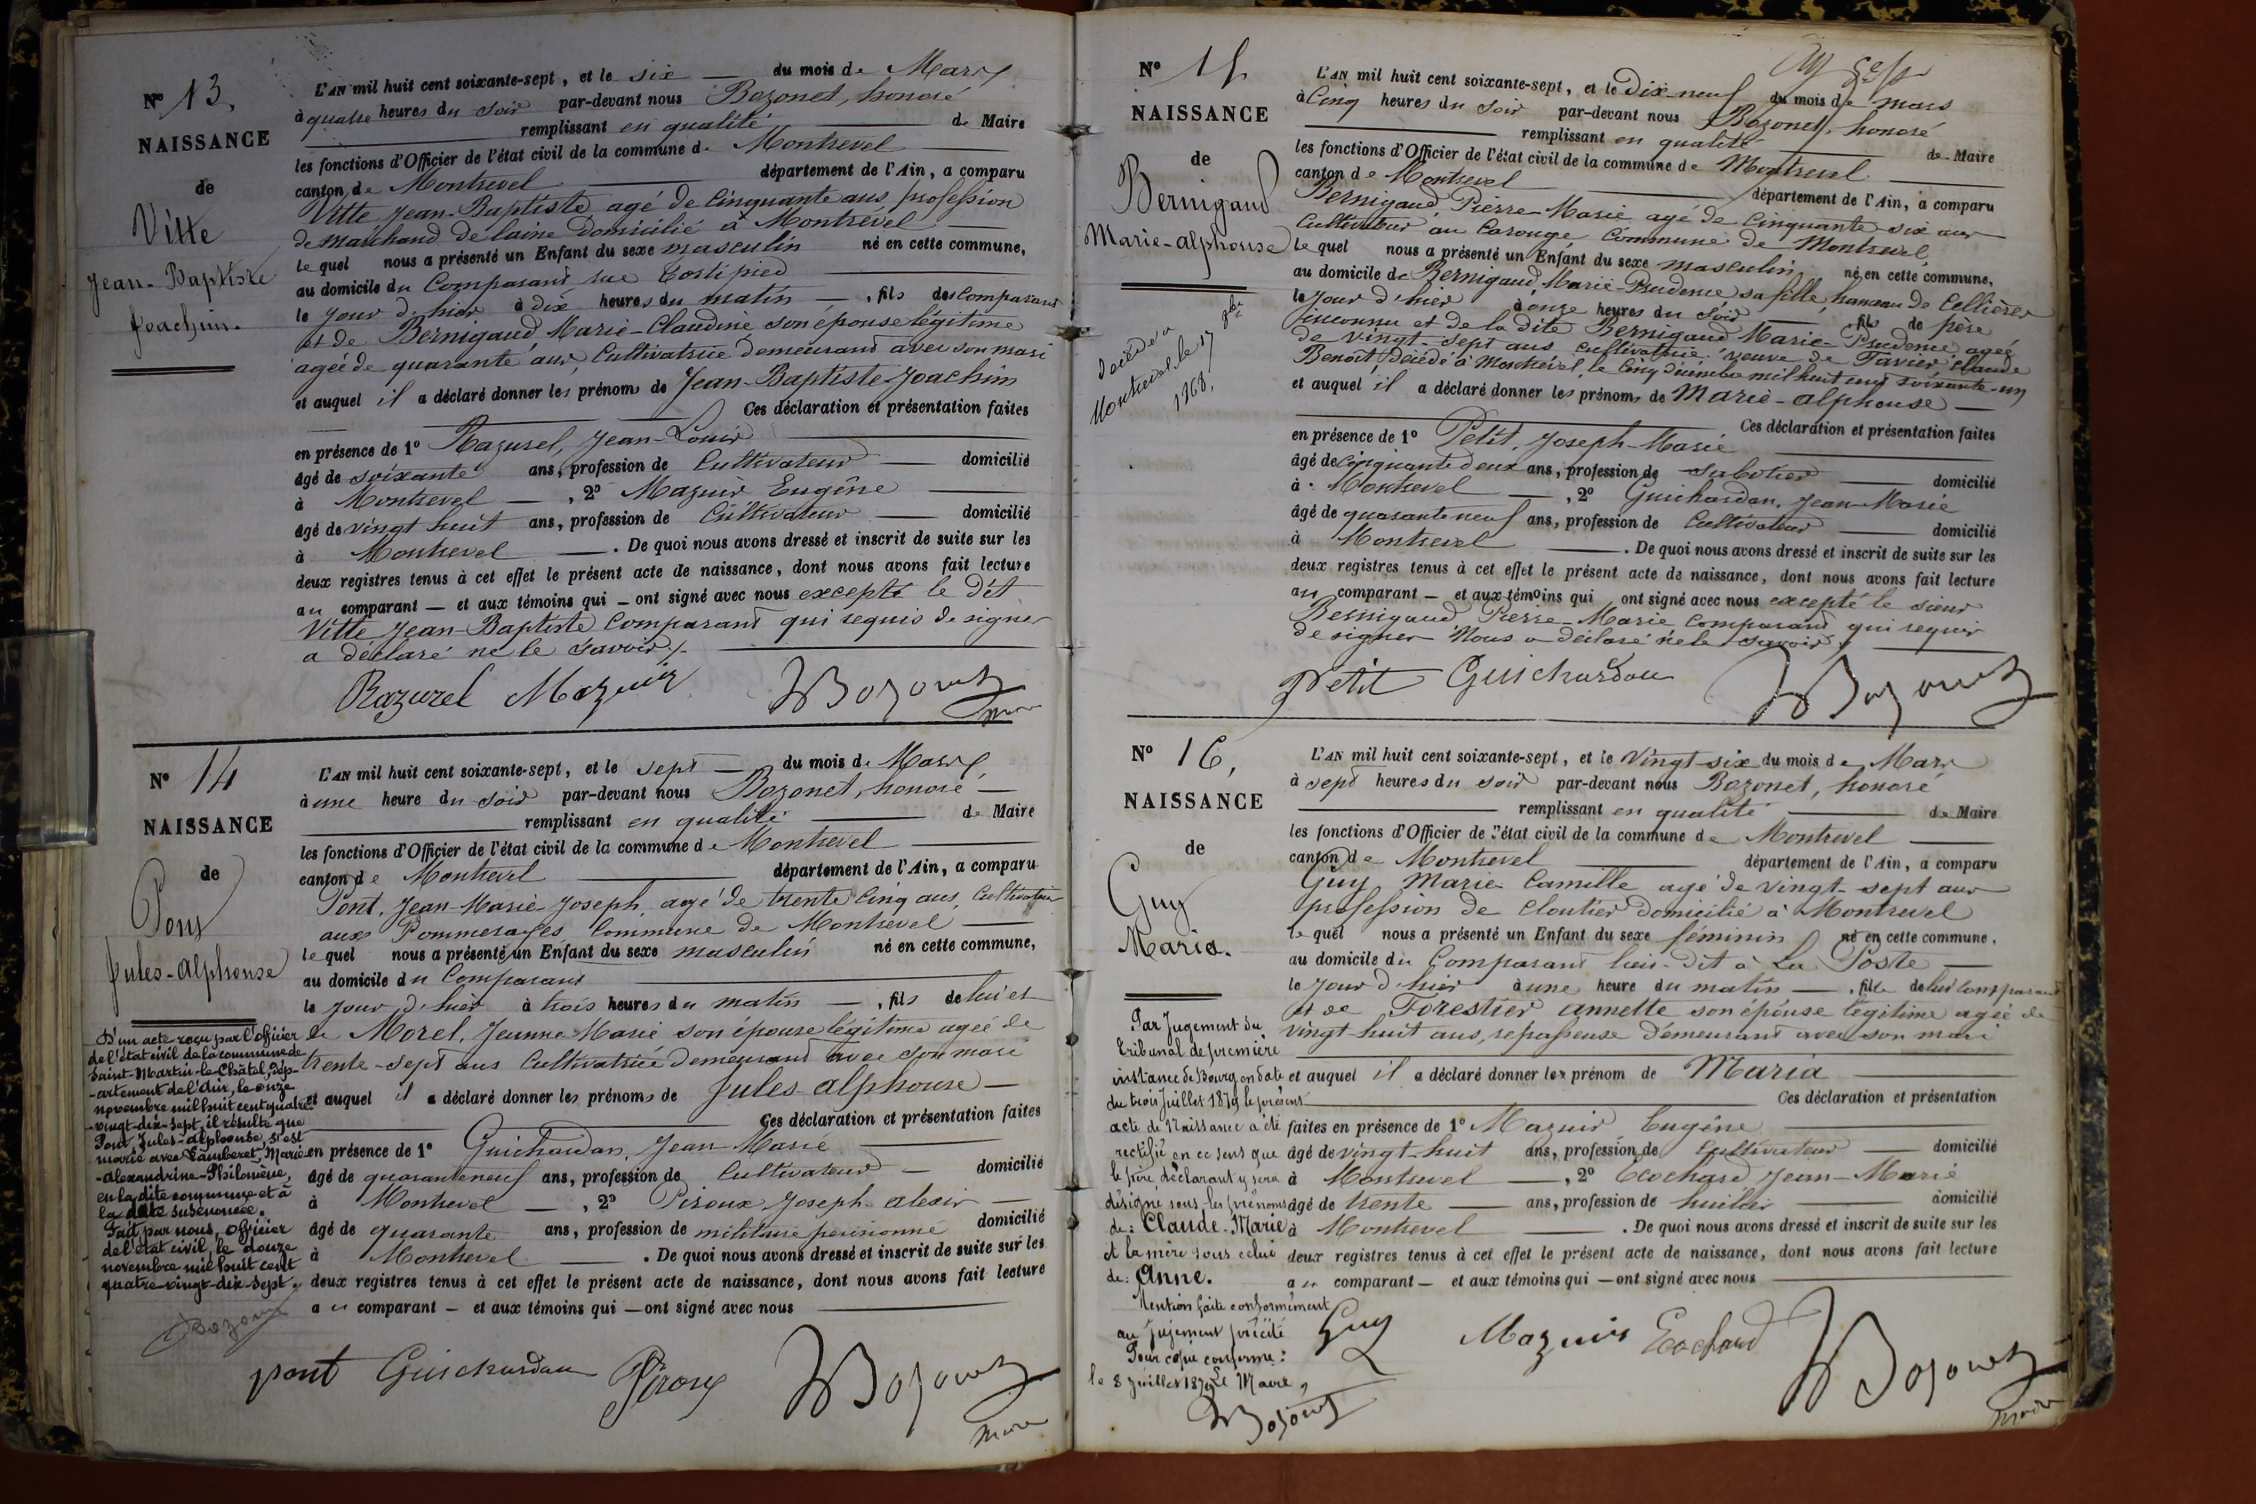 N° 13.
NAISSANCE
de
Vitte
Jean-Baptiste
Joachim.
L'AN mil huit cent soixante-sept, et le six du mois de Mars
à quatre heures du soir par-devant nous Bozonet, honoré
remplissant en qualité de Maire
les fonctions d'Officier de l'état civil de la commune de Montrevel
canton de Montrevel département de l'Ain, a comparu
Vitte Jean-Baptiste agé de Cinquante ans, profession
de marchand de laine domicilié à Montrevel
le quel nous a présenté un Enfant du sexe masculin né en cette commune,
au domicile du Comparant rue
le jour d'hier à dix heures du matin, fils de Comparant
et de Bernigaud, Marie-Claudine son épouse légitime
agée de quarante ans, Cultivatrice demeurant avec son mari
et auquel il a déclaré donner les prénoms de Jean-Baptiste Joachim
Ces déclaration et présentation faites
en présence de 1° Razurel, Jean-Louis
âgé de soixante ans, profession de Cultivateur domicilié
à Montrevel, 2° Mazuir Eugêne
âgé de vingt huit ans, profession de Cultivateur domicilié
à Montrevel. De quoi nous avons dressé et inscrit de suite sur les
deux registres tenus à cet effet le présent acte de naissance, dont nous avons fait lecture
au comparant — et aux témoins qui — ont signé avec nous excepté le dit
Vitte Jean-Baptiste Comparant qui requis de signer
a déclaré ne le savoir.
Razurel Mazuir Bozonet
maire
N° 14
NAISSANCE
de
Pont
Jules-Alphonse
D'un acte reçu par l'officier
de l'état civil de la commune de
Saint-Martin-le-Châtel, dép-
-artement de l'Ain, le onze
novembre mil huit cent quatre-
-vingt-dix-sept, il résulte que
Pont, Jules-Alphonse, s'est
marié avec Lamberet, Marie
-Alexandrine-Philomène,
en la dite commune et à
la date susénoncée.
Fait par nous, officier
de l'état civil, le douze
novembre mil huit cent
quatre-vingt-dix-sept.
Bozonet
L'AN mil huit cent soixante-sept, et le sept du mois de Mars,
à une heure du soir par-devant nous Bozonet, honoré
remplissant en qualité de Maire
les fonctions d'Officier de l'état civil de la commune de Montrevel
canton de Montrevel département de l'Ain, a comparu
Pont, Jean-Marie-Joseph, agé de trente cinq ans, Cultivateur
aux Pommerages Commune de Montrevel
le quel nous a présenté un Enfant du sexe masculin né en cette commune,
au domicile du Comparant
le jour d'hier à trois heures du matin, fils de lui et
de Morel, Jeanne-Marie son épouse légitime agée de
trente-sept ans Cultivatrice demeurant avec son mari
et auquel il a déclaré donner les prénoms de Jules-alphonse
Ces déclaration et présentation faites
en présence de 1° Guichardan, Jean-Marie
âgé de quarante neuf ans, profession de Cultivateur domicilié
à Montrevel, 2° Piroux Joseph alexis
âgé de quarante ans, profession de militaire pensionné domicilié
à Montrevel. De quoi nous avons dressé et inscrit de suite sur les
deux registres tenus à cet effet le présent acte de naissance, dont nous avons fait lecture
au comparant — et aux témoins qui — ont signé avec nous
pont Guichardan Piroux Bozonet
maire
N° 15
NAISSANCE
de
Bernigaud
Marie-alphonse
décédé à
Montrevel le 17 9bre
1968.
L'AN mil huit cent soixante-sept, et le Dix-neuf du mois de mars
à Cinq heures du soir par-devant nous Bozonet, honoré
remplissant en qualité de Maire
les fonctions d'Officier de l'état civil de la commune de Montrevel
canton de Montrevel département de l'Ain, a comparu
Bernigaud, Pierre-Marie agé de Cinquante-six ans
Cultivateur au Carouge Commune de Montrevel,
le quel nous a présenté un Enfant du sexe masculin né en cette commune,
au domicile de Bernigaud, Marie-Prudence sa fille, hameau de Cellières
le jour d'hier à onze heures du soir, fils de père
inconnu et de la dite Bernigaud Marie-Prudence agée
de vingt-sept ans cultivatrice veuve de Favier, Claude
Benoît, décédé à Montrevel, le cinq décembre mil huit cent soixante-un
et auquel il a déclaré donner les prénoms de Marie-alphonse
Ces déclaration et présentation faites
en présence de 1° Petit, Joseph-Marie
âgé de cinquante deux ans, profession de sabotier domicilié
à Montrevel, 2° Guichardan, Jean-Marie
âgé de quarante neuf ans, profession de Cultivateur domicilié
à Montrevel. De quoi nous avons dressé et inscrit de suite sur les
deux registres tenus à cet effet le présent acte de naissance, dont nous avons fait lecture
au comparant — et aux témoins qui ont signé avec nous excepté le sieur
Bernigaud Pierre-Marie comparant qui requis
de signer Nous a déclaré ne le savoir.
Petit Guichardan Bozonet
N° 16,
NAISSANCE
de
Guy
Maria.
Par Jugement du
tribunal de première
instance de Bourg en date
du trois juillet 1879 le présent
acte de Naissance a été
rectifié en ce sens que
le père, déclarant y sera
désigné sous les prénoms
de: Claude-Marie
et la mère sous celui
de: Anne.
Mention faite conformément
au jugement précité
Pour copie conforme:
le 8 juillet 1879 Le Maire,
Bozonet
L'AN mil huit cent soixante-sept, et le Vingt-six du mois de Mars
à sept heures du soir par-devant nous Bozonet, honoré
remplissant en qualité de Maire
les fonctions d'Officier de l'état civil de la commune de Montrevel
canton de Montrevel département de l'Ain, a comparu
Guy Marie Camille agé de vingt-sept ans
profession de Cloutier domicilié à Montrevel
le quel nous a présenté un Enfant du sexe féminin né en cette commune,
au domicile du Comparant lieu-dit à La Poste
le jour d'hier à une heure du matin, fille de lui Comparant
et de Forestier annette son épouse légitime agée de
vingt-huit ans, repasseuse demeurant avec son mari
et auquel il a déclaré donner les prénom de Maria
Ces déclaration et présentation
faites en présence de 1° Mazuir Eugêne
âgé de vingt-huit ans, profession de Cultivateur domicilié
à Montrevel, 2° Ecochard Jean-Marie
âgé de trente ans, profession de huilier domicilié
à Montrevel. De quoi nous avons dressé et inscrit de suite sur les
deux registres tenus à cet effet le présent acte de naissance, dont nous avons fait lecture
au comparant — et aux témoins qui — ont signé avec nous
Guy Mazuir Ecochard Bozonet
maire